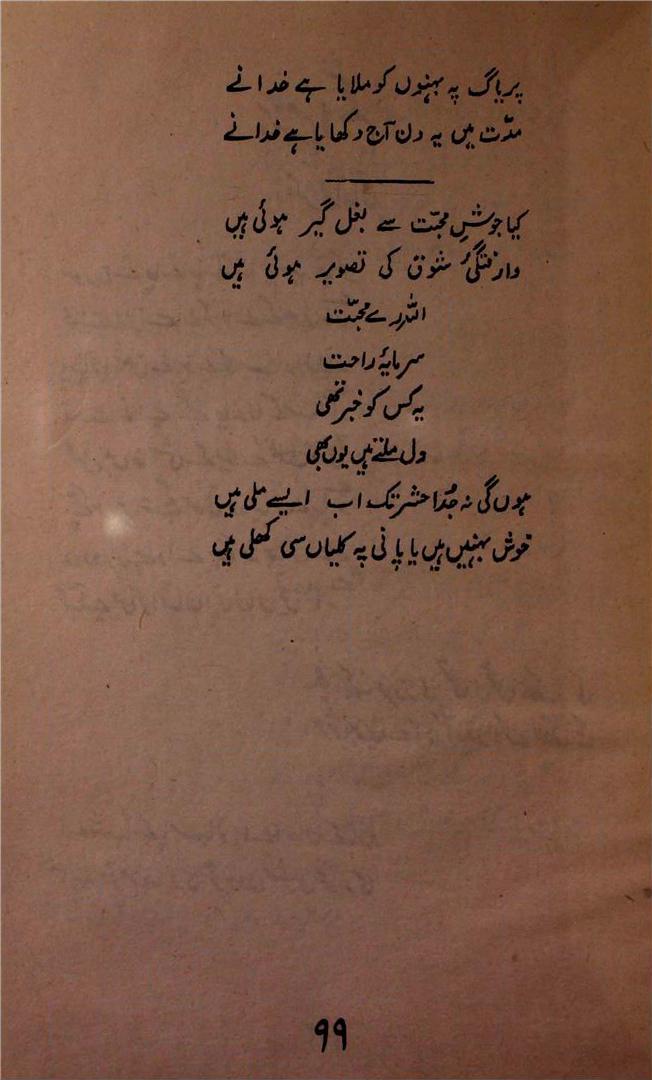 پریاگ پہ بہنوں کو ملایا ہے خدا نے
مدّت میں یہ دن آج دکھایا ہے خدا نے
کیا جوشِ محبّت سے بغل گیر ہوئی ہیں
وارفتگیٔ شوق کی تصویر ہوئی ہیں
اللہ رے محبّت
سرمایۂ راحت
یہ کس کو خبر تھی
دل ملتے ہیں یوں بھی
ہوں گی نہ جُدا حشر تک اب ایسے ملی ہیں
خوش بہنیں ہیں یا پانی پہ کلیاں سی کھلی ہیں
۹۹